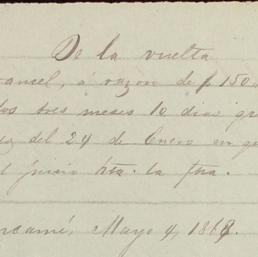 De la vuelta
ancel, á razon de $ 150
dos tres meses 10 dias
del 24 de Enero en
juicio hta. la fha.
Mayo 4, 1868.